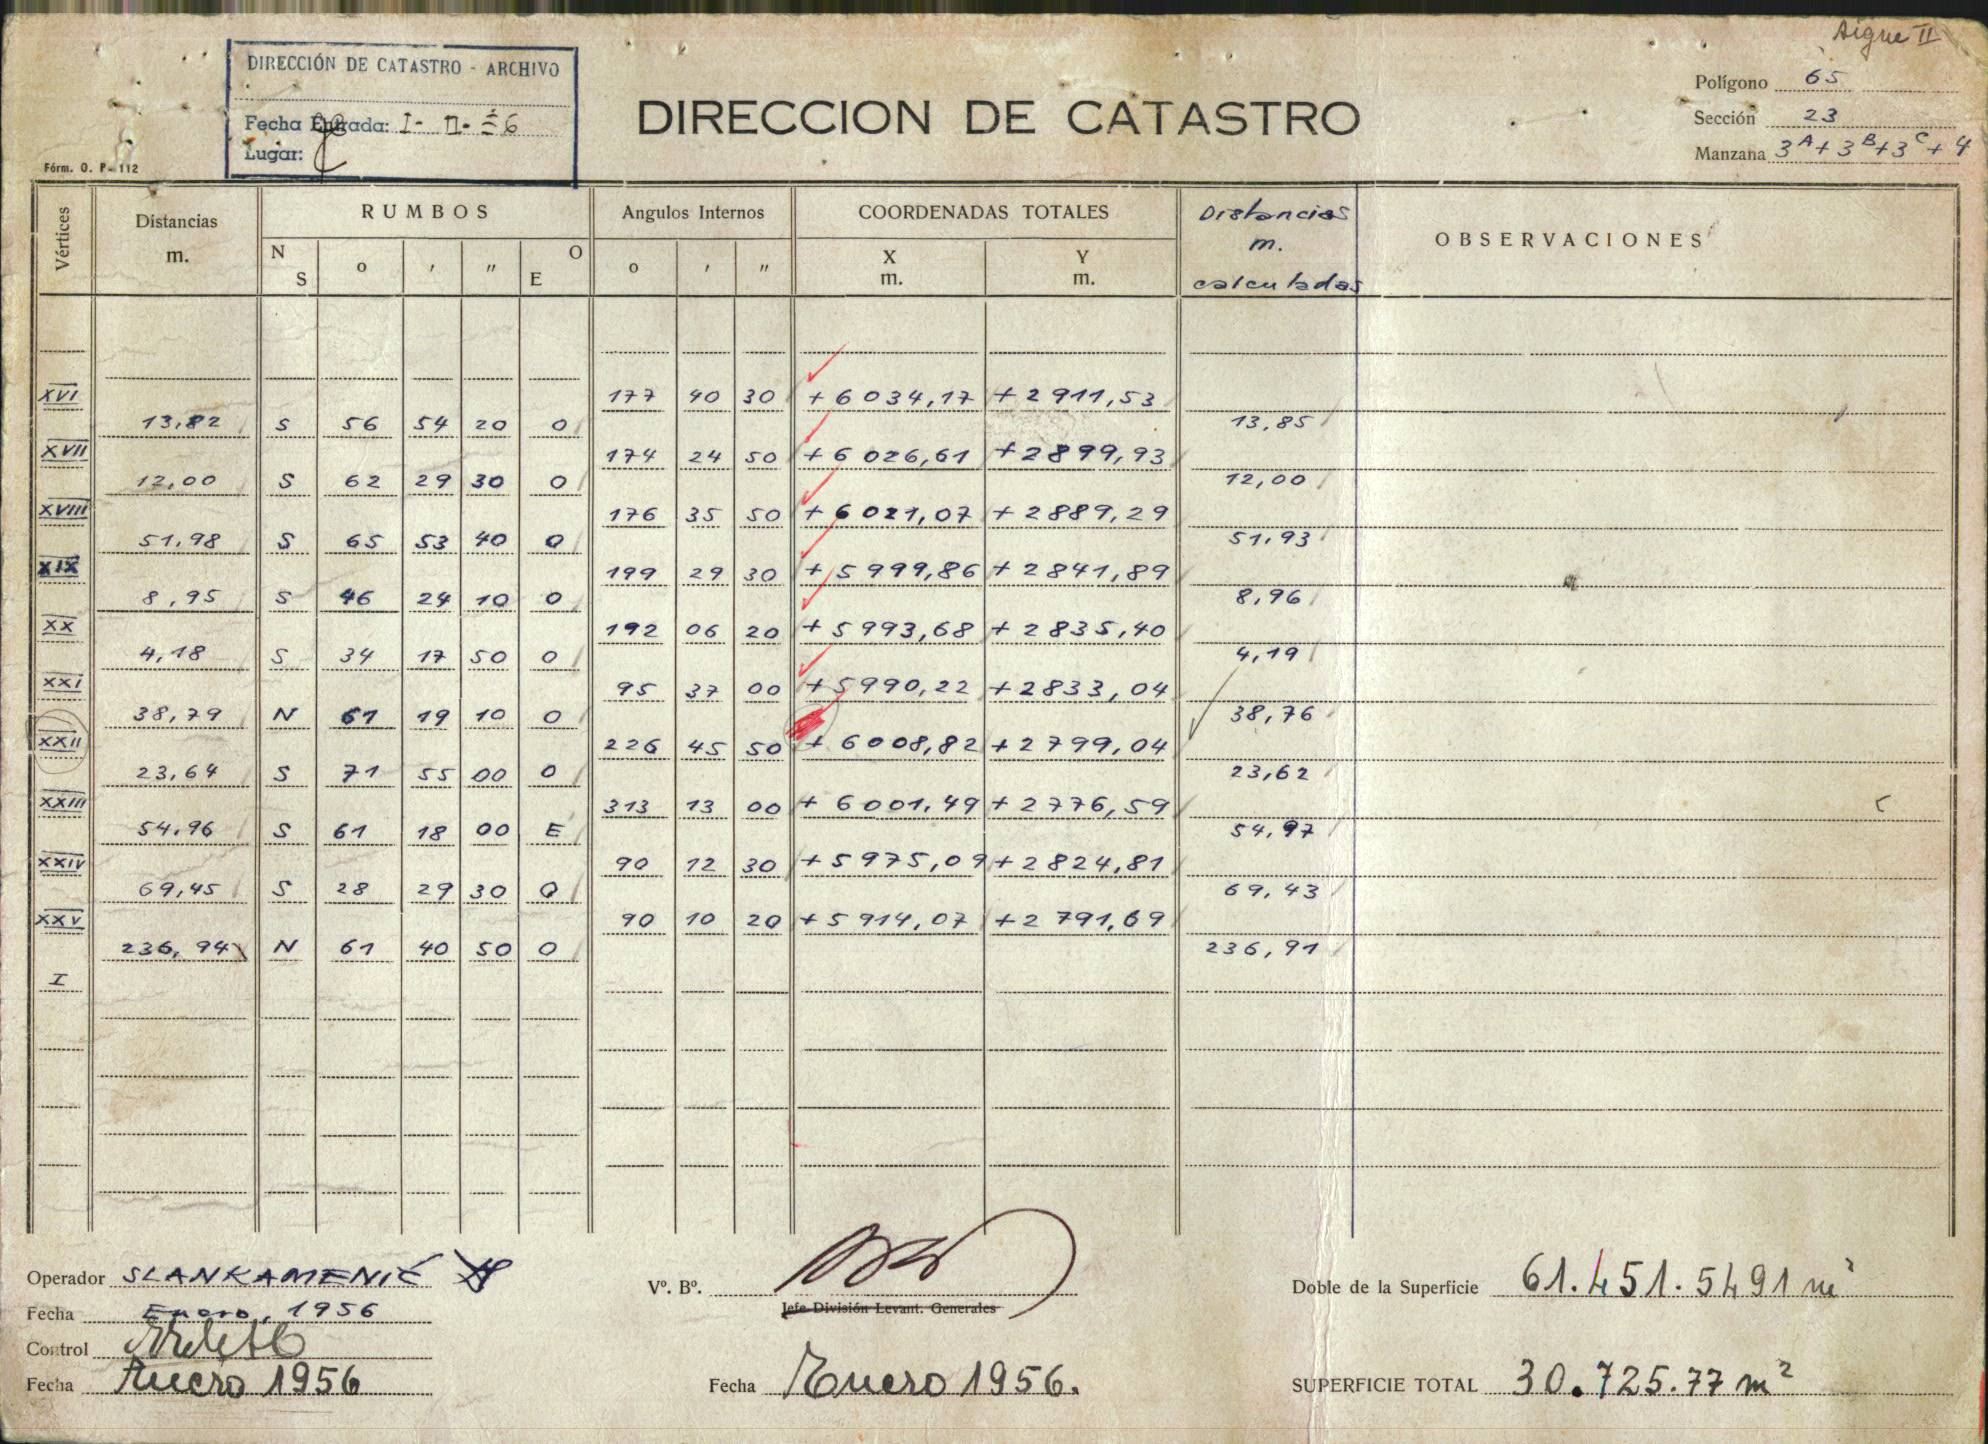 Sigue II
DIRECCIÓN DE CATASTRO - ARCHIVO
Fecha Entrada: I- II- 56
Lugar:
DIRECCION DE CATASTRO
Polígono 65
Sección 23
Manzana 3A+3B+3C+4
Fórm. O. P- 112
Vértices
Distancias m.
RUMBOS
N S
o
,
,,
O E
Angulos Internos
o
,
,,
COORDENADAS TOTALES
X m.
Y m.
Distancias m. calculadas
OBSERVACIONES
XVI 177 40 30 +6034,17 +2911,53
13,82 S 56 54 20 O 13,85
XVII 174 24 50 +6026,61 +2899,93
12,00 S 62 29 30 O 12,00
XVIII 176 35 50 +6021,07 +2889,29
51,98 S 65 53 40 O 51,93
XIX 199 29 30 +5999,86 +2841,89
8,95 S 46 24 10 O 8,96
XX 192 06 20 +5993,68 +2835,40
4,18 S 34 17 50 O 4,19
XXI 95 37 00 +5990,22 +2833,04
38,79 N 61 19 10 O 38,76
XXII 226 45 50 +6008,82 +2799,04
23,64 S 71 55 00 O 23,62
XXIII 313 13 00 +6001,49 +2776,59
54,96 S 61 18 00 E 54,97
XXIV 90 12 30 +5975,09 +2824,81
69,45 S 28 29 30 O 69,43
XXV 90 10 20 +5914,07 +2791,69
236,94 N 61 40 50 O 236,91
I
Operador SLANKAMENIĆ
Fecha Enero, 1956
Control
Fecha Enero 1956
Vº. Bº.
Jefe División Levant. Generales
Fecha Enero 1956.
Doble de la Superficie 61.451.5491 m²
SUPERFICIE TOTAL 30.725.77 m²